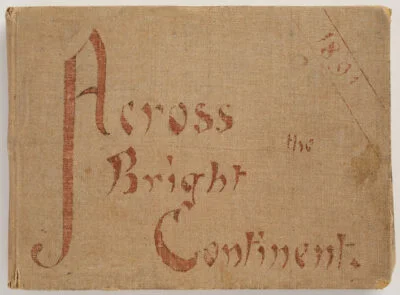 1891
Across
the
Bright
Continent.